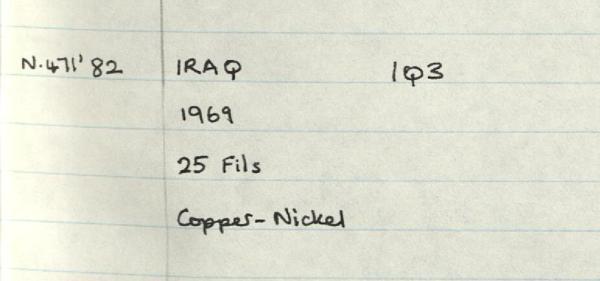 N.471'82 IRAQ IQ3
1969
25 Fils
Copper-Nickel